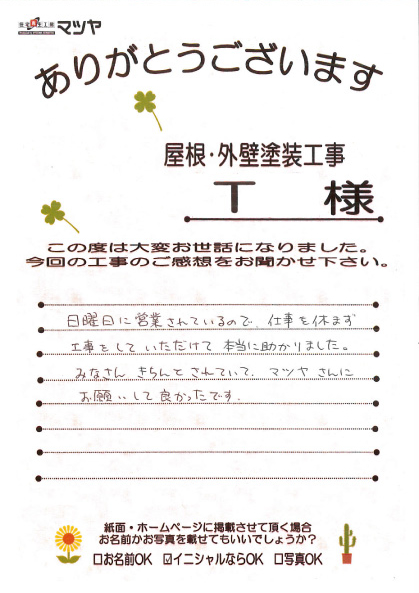 マツヤ
ありがとうございます
屋根・外壁塗装工事
T 様
この度は大変お世話になりました。
今回の工事のご感想をお聞かせ下さい。
日曜日に営業されているので、仕事を休まず
工事をして いただけて 本当に助かりました。
みなさん きちんと されていて、マツヤ さんに
お願いして良かったです.
紙面・ホームページに掲載させて頂く場合
お名前かお写真を載せてもいいでしょうか?
□お名前OK ☑イニシャルならOK □写真OK